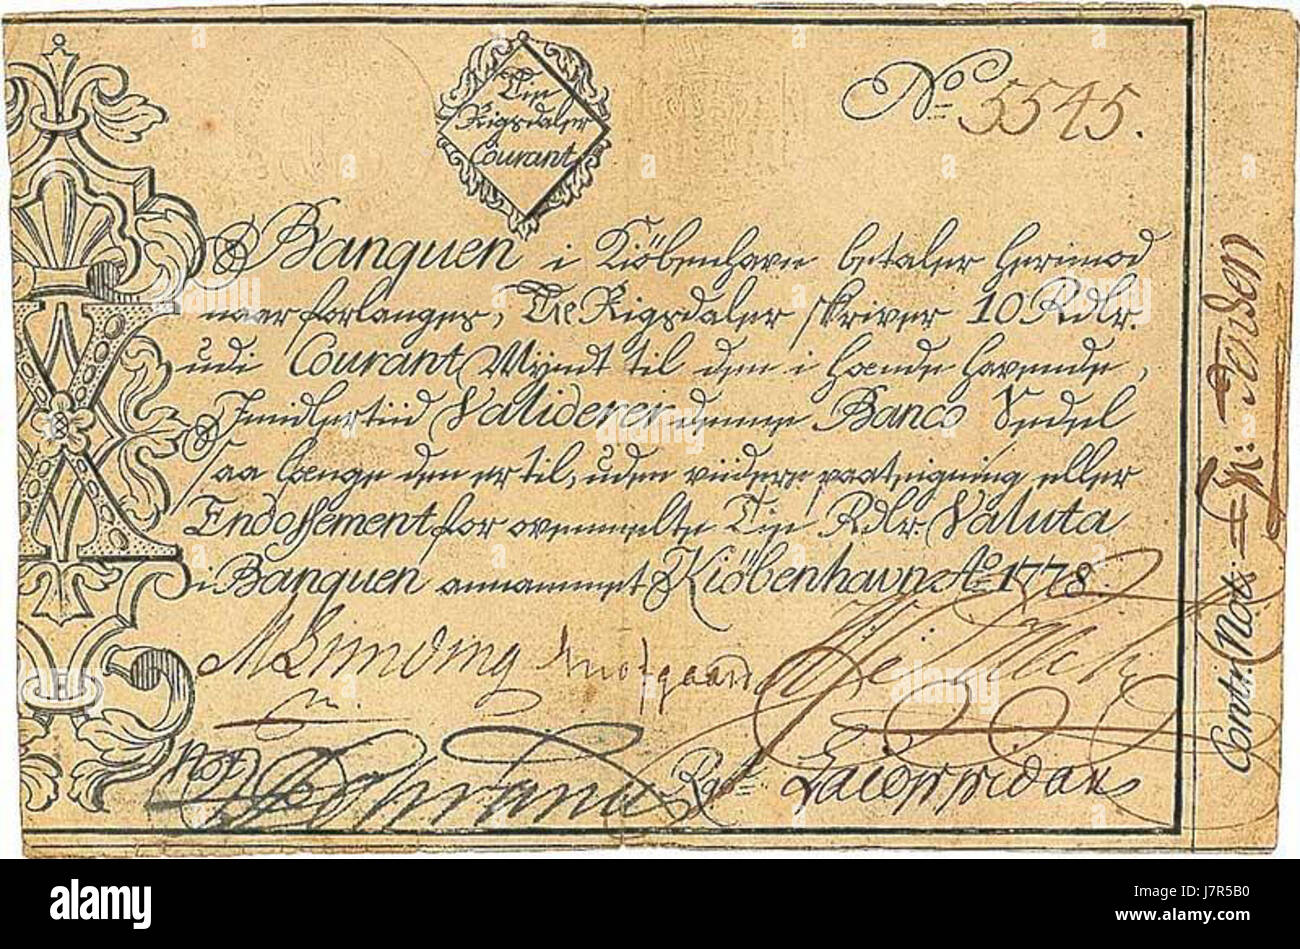 Tie
Rigsdaler
Courant
No. 5545.
Banquen i Kiöbenhavn betaler herimod
naar forlanges, Tie Rigsdaler skriver 10 Rdlr.
udi Courant Myndt til den i hænde havende,
Imidlertiid Validerer denne Banco Sedel
saa længe den er til, uden viidere paategning eller
Endossement for ovenmelte Tie Rdlr. Valuta
i Banquen annammet Kiöbenhavn Ao 1778.
Not
Rgt
Contr: Not:
X
alamy
Image ID: J7R5B0
www.alamy.com